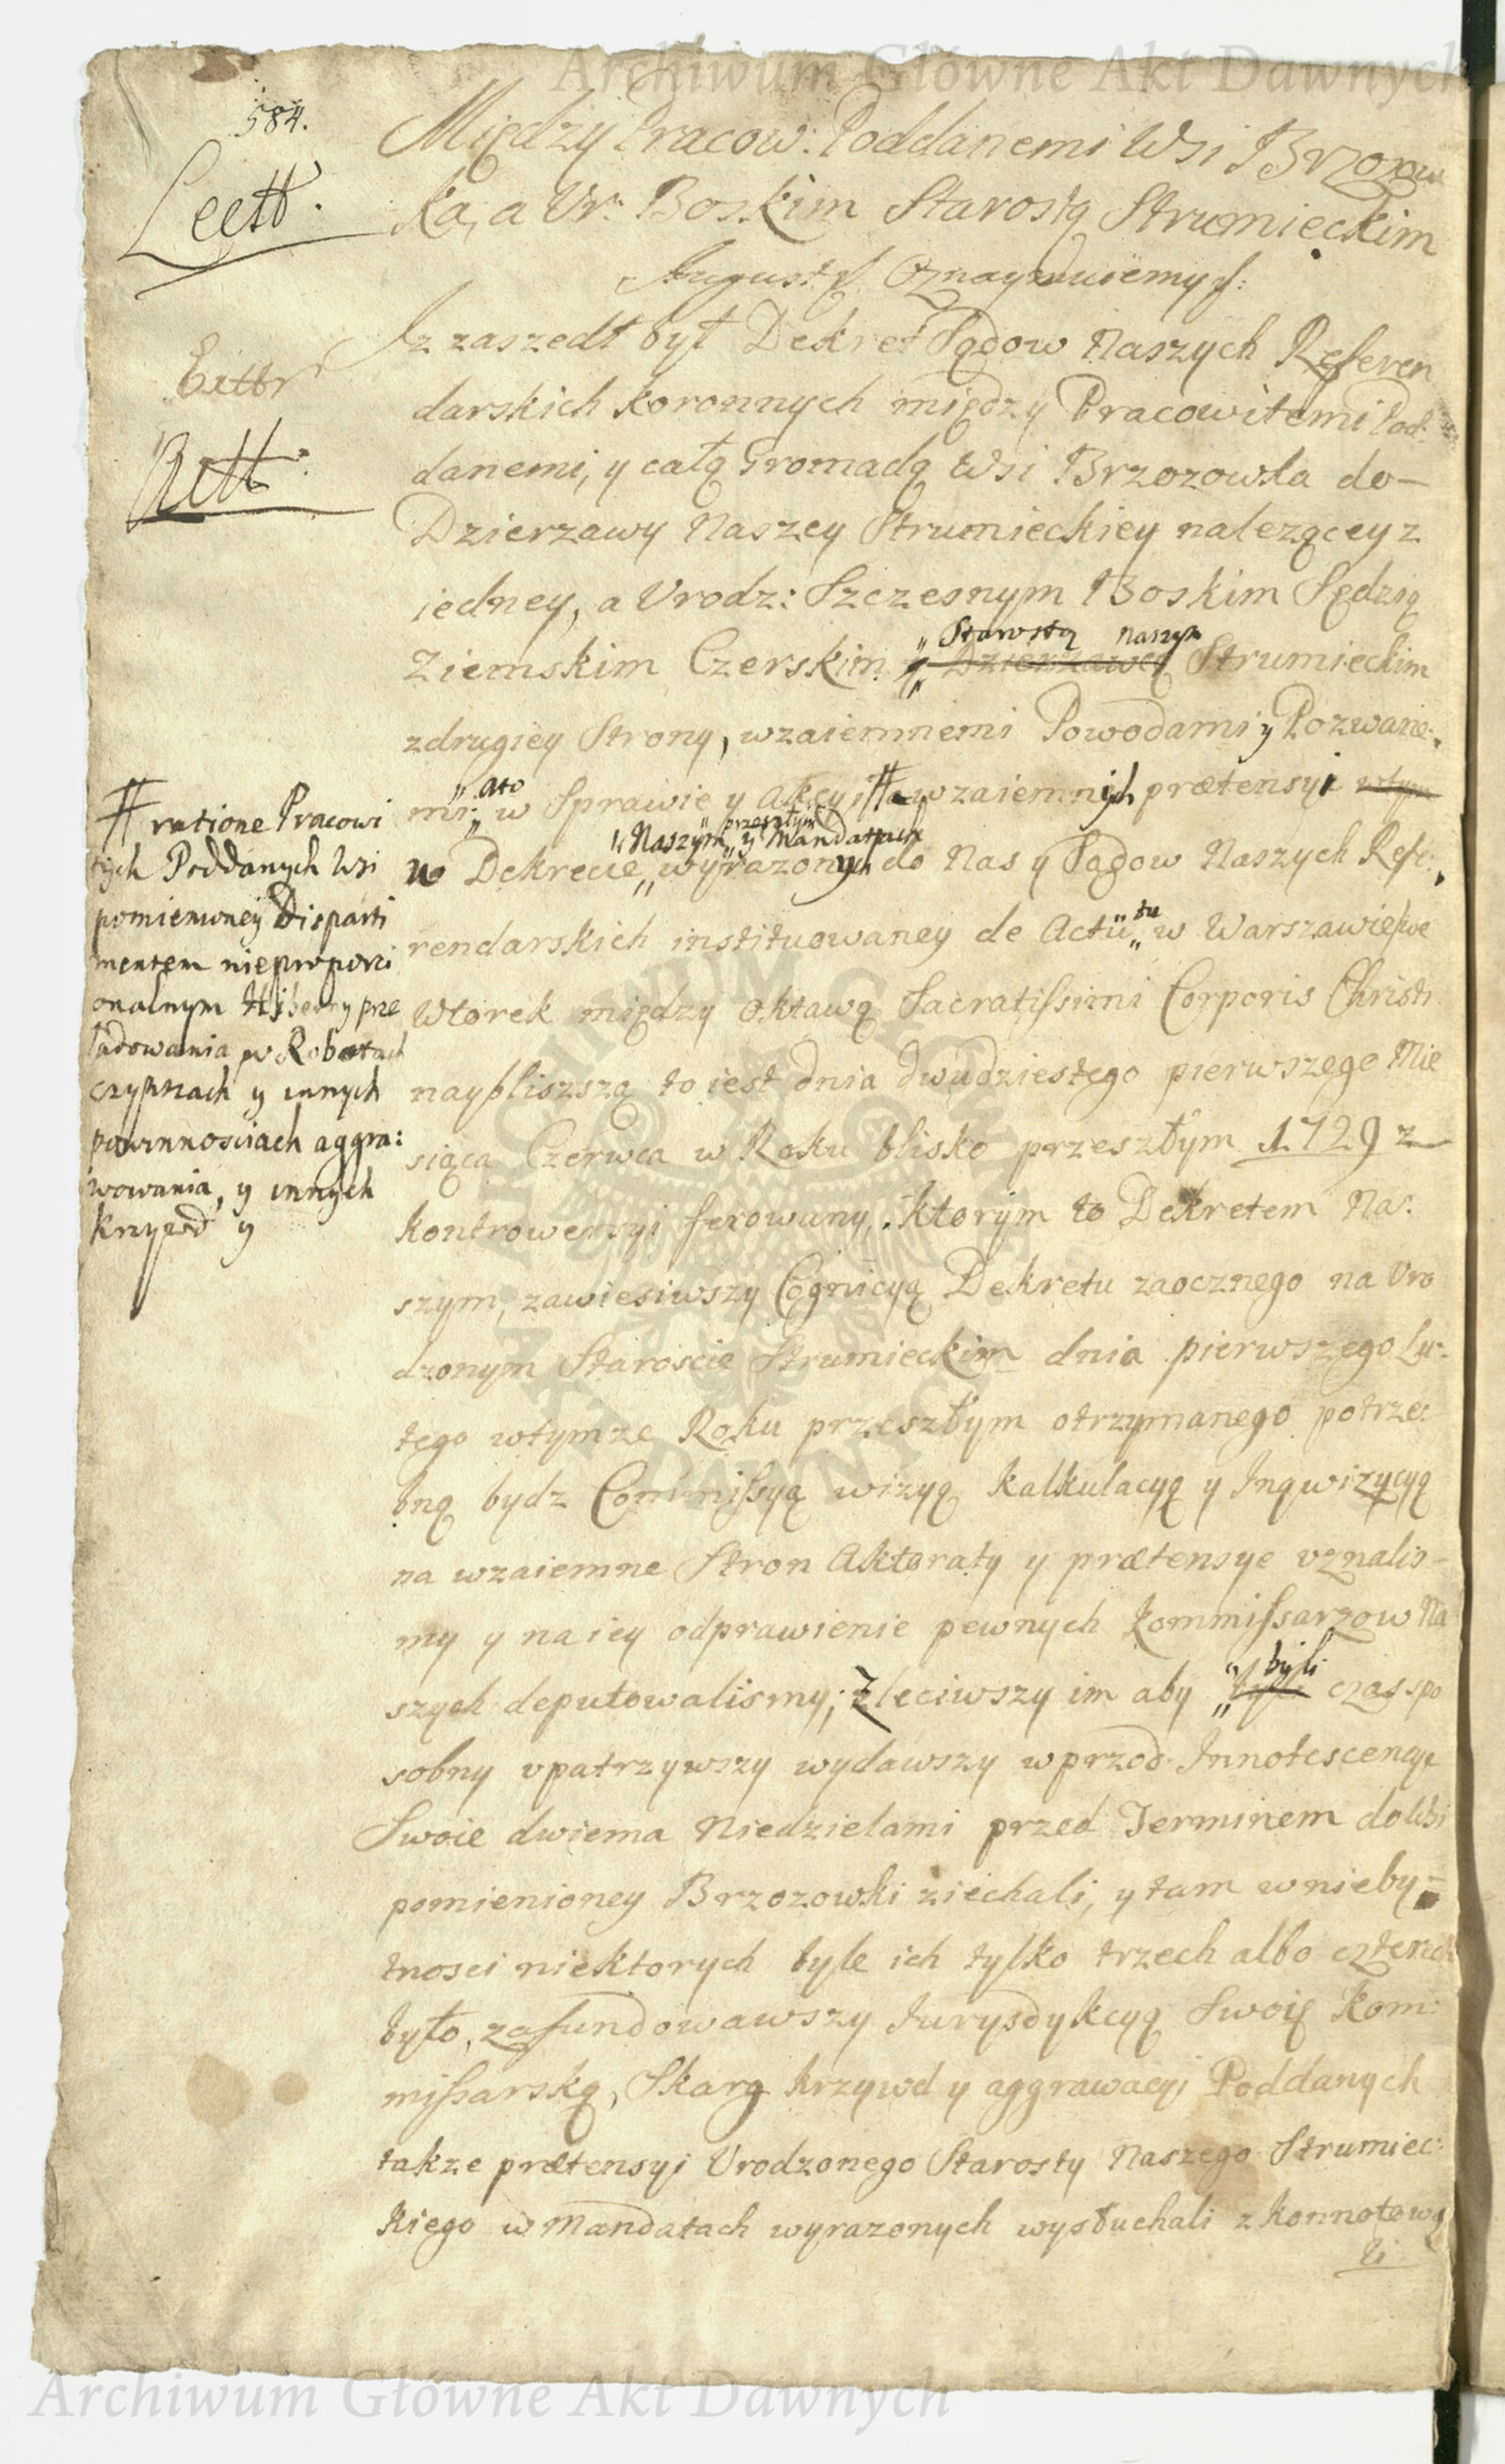 584.
Lectt.
Między Pracow: Poddanemi Wsi Brzozow
ka, a Ur: Boskim Starostą Strumieckim
August Oznaymuiemy
Rtt.
Iz zaszedł był Dekret Sądow Naszych Referen
darskich koronnych między Pracowitemi Pod:
danemi, y całą Gromadą Wsi Brzozowka do-
Dzierzawy Naszey Strumieckiey nalezącey z
iedney, a Urodz: Szczesnym Boskim Sędzią
Starostą Naszym
Ziemskim Czerskim y Dzierzawcą Strumieckim
zdrugiey Strony, wzaiemnemi Powodami y Pozwane:
ato
mi; w Sprawie y Akcyi # wzaiemnych prætensyi wtym
Naszym przeszłym y Mandatach
w Dekrecie wyrazonych do Nas y Sądow Naszych Refe:
rendarskich instituowaney de Actu tu w Warszawie we
Wtorek między oktawą Sacratissimi Corporis Christi
naybliszszą to iest dnia dwudziestego pierwszego Mie
siąca Czerwca w Roku blisko przeszłym 1729 z
kontrowersyi ferowany, ktorym to Dekretem Na:
szym, zawiesiwszy Cognicyą Dekretu zaocznego na Uro
dzonym Staroscie Strumieckim dnia pierwszego Lu:
tego wtymze Roku przeszłym otrzymanego potrze:
bną bydz Commissyą wizyą kalkulacyą y Inqwizycyą
na wzaiemne Stron Aktoraty y prætensye uznalis-
my y na iey odprawienie pewnych kommissarzow Na
szych deputowalismy; Zleciwszy im aby byli czas spo
sobny upatrzywszy wydawszy wprzod Innotescencye
Swoie dwiema Niedzielami przed Terminem do Wsi
pomienioney Brzozowki ziechali, y tam w nieby-
tnosci niektorych byle ich tylko trzech albo czterech
było, zafundowawszy Jurysdykcyą Swoię Kom:
missarską, Skarg krzywd y aggrawacyi Poddanych
takze prætensyi Urodzonego Starosty Naszego Strumiec:
kiego w Mandatach wyrazonych wysłuchali zkonnotowa
li
# ratione Pracowi
tych Poddanych Wsi
pomienioney Disparti
mentem nieproporci
onalnym Hiberny prze
ładowania w Robotach
czynszach y innych
powinnosciach aggra:
wowania, y innych
krzywd y
Archiwum Główne Akt Dawnych
Archiwum Główne Akt Dawnych